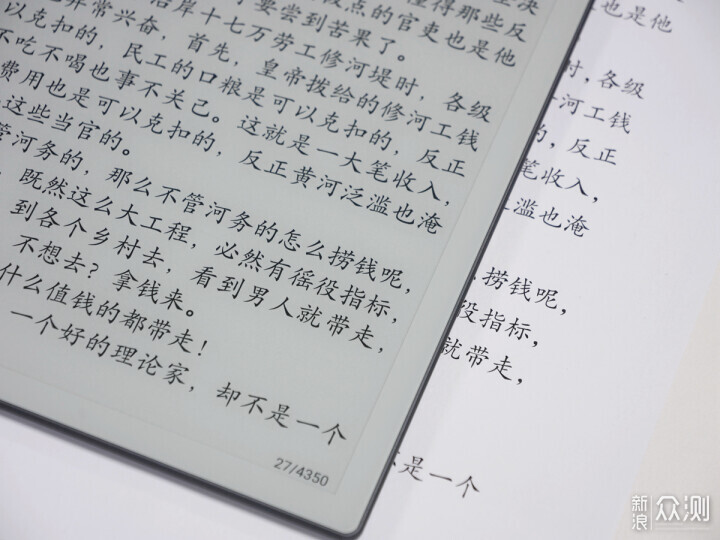 得那些反
点的官吏也是他
要尝到苦果了。
沿岸十七万劳工修河堤时，各级
非常兴奋，首先，皇帝拨给的修河工钱
以克扣的，民工的口粮是可以克扣的，反正
不吃不喝也事不关己。这就是一大笔收入，
费用也是可以克扣的，反正黄河泛滥也淹
这些当官的。
管河务的，那么不管河务的怎么捞钱呢，
，既然这么大工程，必然有徭役指标，
到各个乡村去，看到男人就带走，
不想去？拿钱来。
什么值钱的都带走！
一个好的理论家，却不是一个
27/4350
也是他
时，各级
河工钱
的，反正
笔收入，
滥也淹
捞钱呢，
役指标，
就带走，
是一个
新浪众测